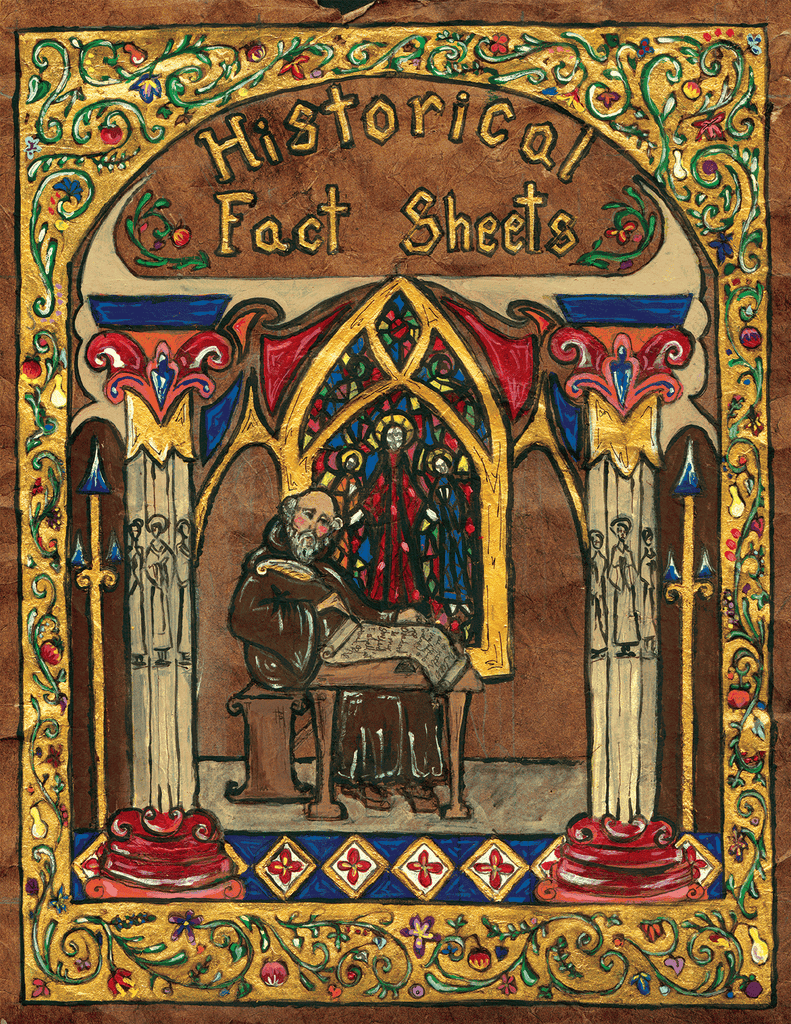 Historical
Fact Sheets